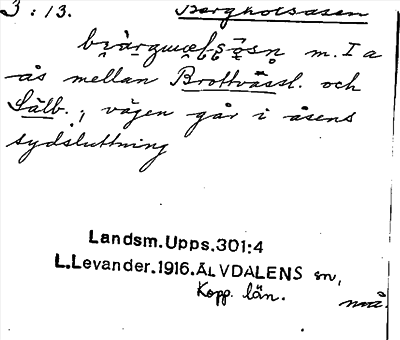 3:13. Bergkolsåsen
m. I a
ås mellan Brottvässl. och
Sälb.; vägen går i åsens
sydsluttning
Landsm. Upps. 301:4
L. Levander. 1916. ÄLVDALENS sn,
Kopp. län.